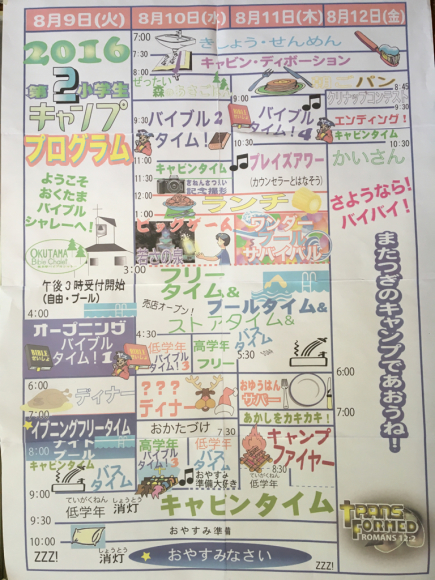 8月9日(火)
8月10日(水)
8月11日(木)
8月12日(金)
2016
第2小学生
キャンプ
プログラム
ようこそ
おくたま
バイブル
シャレーへ!
OKUTAMA
Bible Chalet
午後3時受付開始
(自由・プール)
4:00
オープニング
バイブル
タイム!1
6:00
ディナー
7:00
イブニングフリータイム
ナイト
プール
8:00
キャビンタイム
バス
タイム
9:00
ていがくねん
低学年
しょうとう
消灯
10:00
ZZZ!
しょうとう
消灯
7:00
きしょう・せんめん
7:30
キャビン・ディボーション
8:30
ぜったい
森
9:30
バイブル
タイム!2
キャビンタイム
11:00
きねんさつえい
記念撮影
11:30
12:00
ランチ
ビッグゲーム
3:00
フリー
タイム&
売店オープン!
ストアタイム&
低学年
バイブル
タイム!3
高学年
フリー
???
ディナー
おかたづけ
7:30
高学年
バイブル
タイム!3
低学年
バス
タイム
おやすみ
準備大好き
パン
9:00
バイブル
タイム!4
10:30
プレイズアワー
(カウンセラーとはなそう)
ワンダー
プール
サバイバル
プールタイム&
バス
タイム
5:30
おゆうはん
サパー
あかしをカキカキ!
キャンプ
ファイヤー
8:30
ていがくねん
低学年
キャビンタイム
おやすみ準備
おやすみなさい
ZZZ!
8:45
クリナップコンテスト
9:30
エンディング!
キャビンタイム
10:30
かいさん
さようなら!
バイバイ!
またつぎのキャンプであおうね!
6:00
7:00
TRANSFORMED
ROMANS 12:2